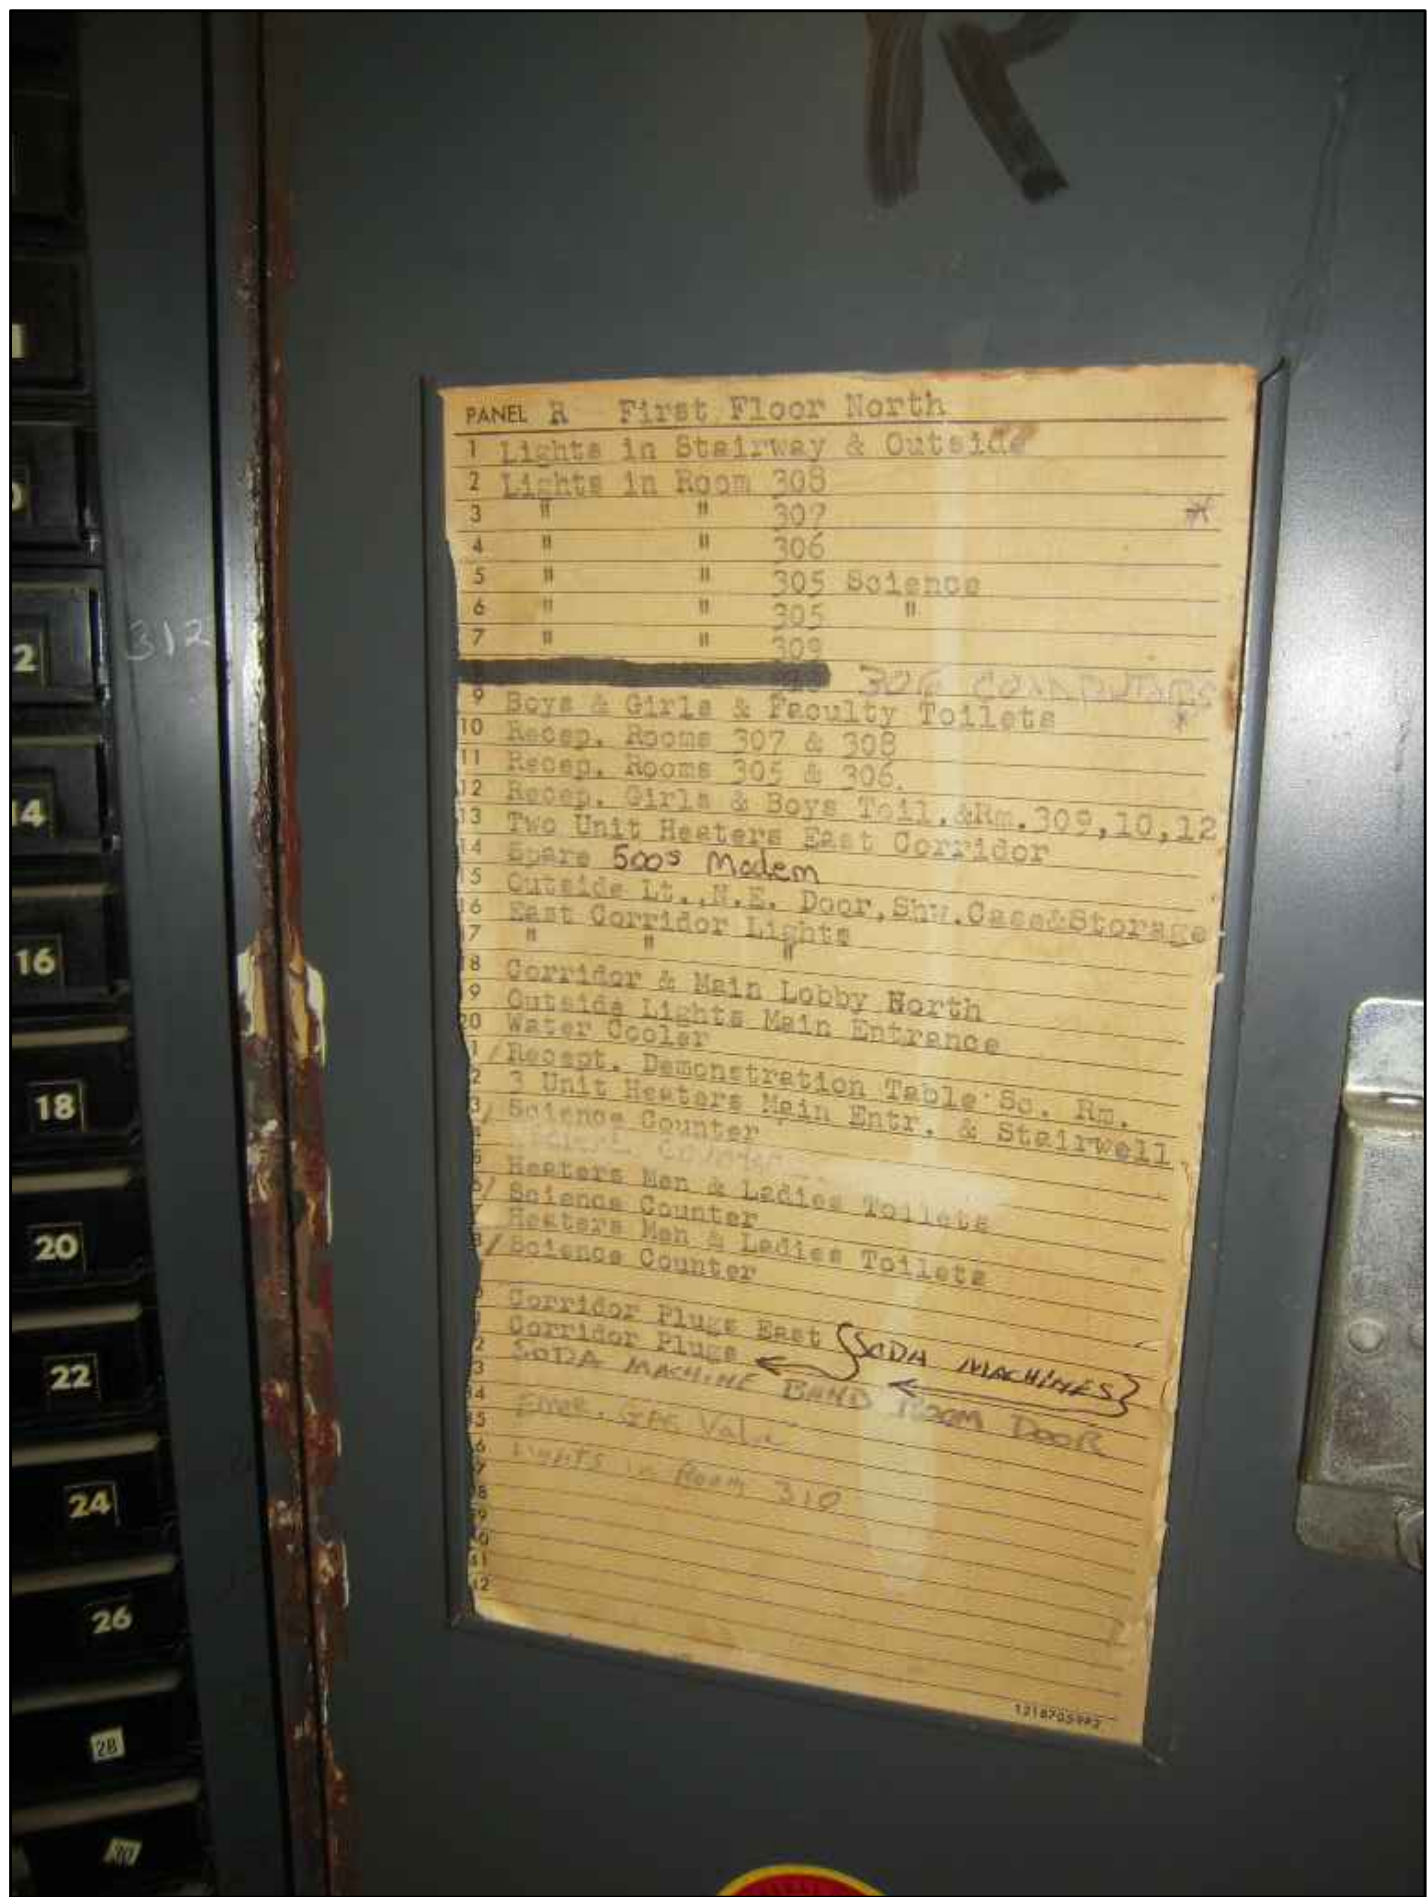 R
PANEL R First Floor North
1 Lights in Stairway & Outside
2 Lights in Room 308
3 " " 307 *
4 " " 306
5 " " 305 Science
6 " " 305 "
7 " " 309
306 COMPUTERS
9 Boys & Girls & Faculty Toilets *
10 Recep. Rooms 307 & 308
11 Recep. Rooms 305 & 306.
12 Recep. Girls & Boys Toil.&Rm.309,10,12
13 Two Unit Heaters East Corridor
14 Spare 500s Modem
15 Outside Lt.,N.E. Door,Shw.Case&Storage
16 East Corridor Lights
7 " " "
8 Corridor & Main Lobby North
9 Outside Lights Main Entrance
20 Water Cooler
1/ Recept. Demonstration Table Sc. Rm.
2 3 Unit Heaters Main Entr. & Stairwell
3/ Science Counter
5 Heaters Men & Ladies Toilets
/ Science Counter
Heaters Men & Ladies Toilets
/ Science Counter
Corridor Plugs East { SODA MACHINES }
2 Corridor Plugs
3 SODA MACHINE BAND ROOM DOOR
34
35 Emer. Gas Valve
6
7 Lights in Room 310
38
39
40
41
42
1218705992
312
2
14
16
18
20
22
24
26
28
30